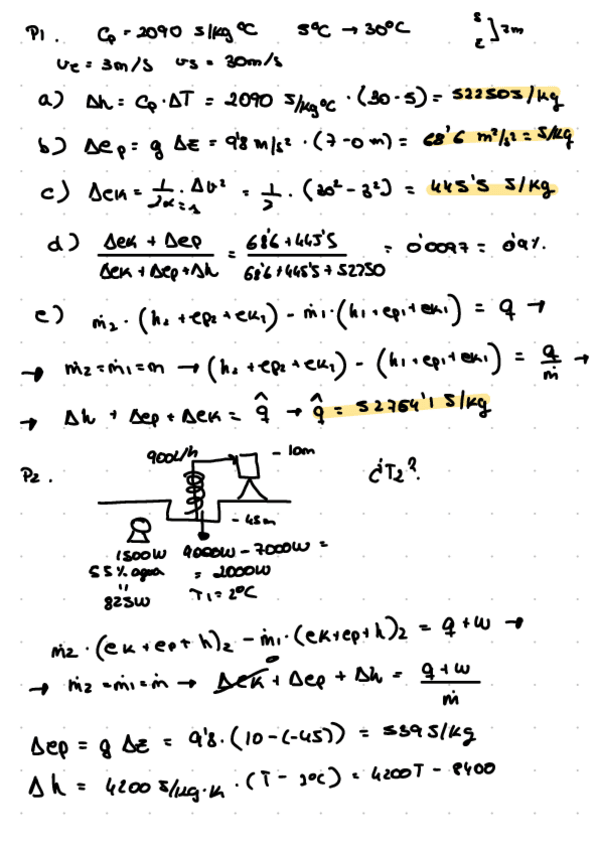 P1. Cp = 2090 J/kg ºC 5ºC → 30ºC S E ] 7m
vE = 3m/s vS = 30m/s
a) Δh = Cp · ΔT = 2090 J/kgºC · (30 - 5) = 52250 J/kg
b) Δep = g Δz = 9'8 m/s² · (7 - 0 m) = 68'6 m²/s² = J/kg
c) Δek = 1/2α=1 · Δv² = 1/2 · (30² - 3²) = 445'5 J/kg
d) Δek + Δep / Δek + Δep + Δh = 68'6 + 445'5 / 68'6 + 445'5 + 52250 = 0'0097 = 0'9%.
e) ṁ2 · (h2 + ep2 + ek1) - ṁ1 · (h1 + ep1 + ek1) = q →
→ ṁ2 = ṁ1 = ṁ → (h2 + ep2 + ek1) - (h1 + ep1 + ek1) = q/ṁ →
→ Δh + Δep + Δek = q̂ → q̂ = 52764'1 J/kg
P2. 900L/h - 10m ¿T2?
- 45m
1500W 9000W - 7000W =
55% agua = 2000W
" T1 = 2ºC
825W
ṁ2 · (ek + ep + h)2 - ṁ1 · (ek + ep + h)2 = q + w →
→ ṁ2 = ṁ1 = ṁ → Δek + Δep + Δh = q + w / ṁ
Δep = g Δz = 9'8 · (10 - (-45)) = 539 J/kg
Δh = 4200 J/kg·K · (T - 2ºC) = 4200T - 8400